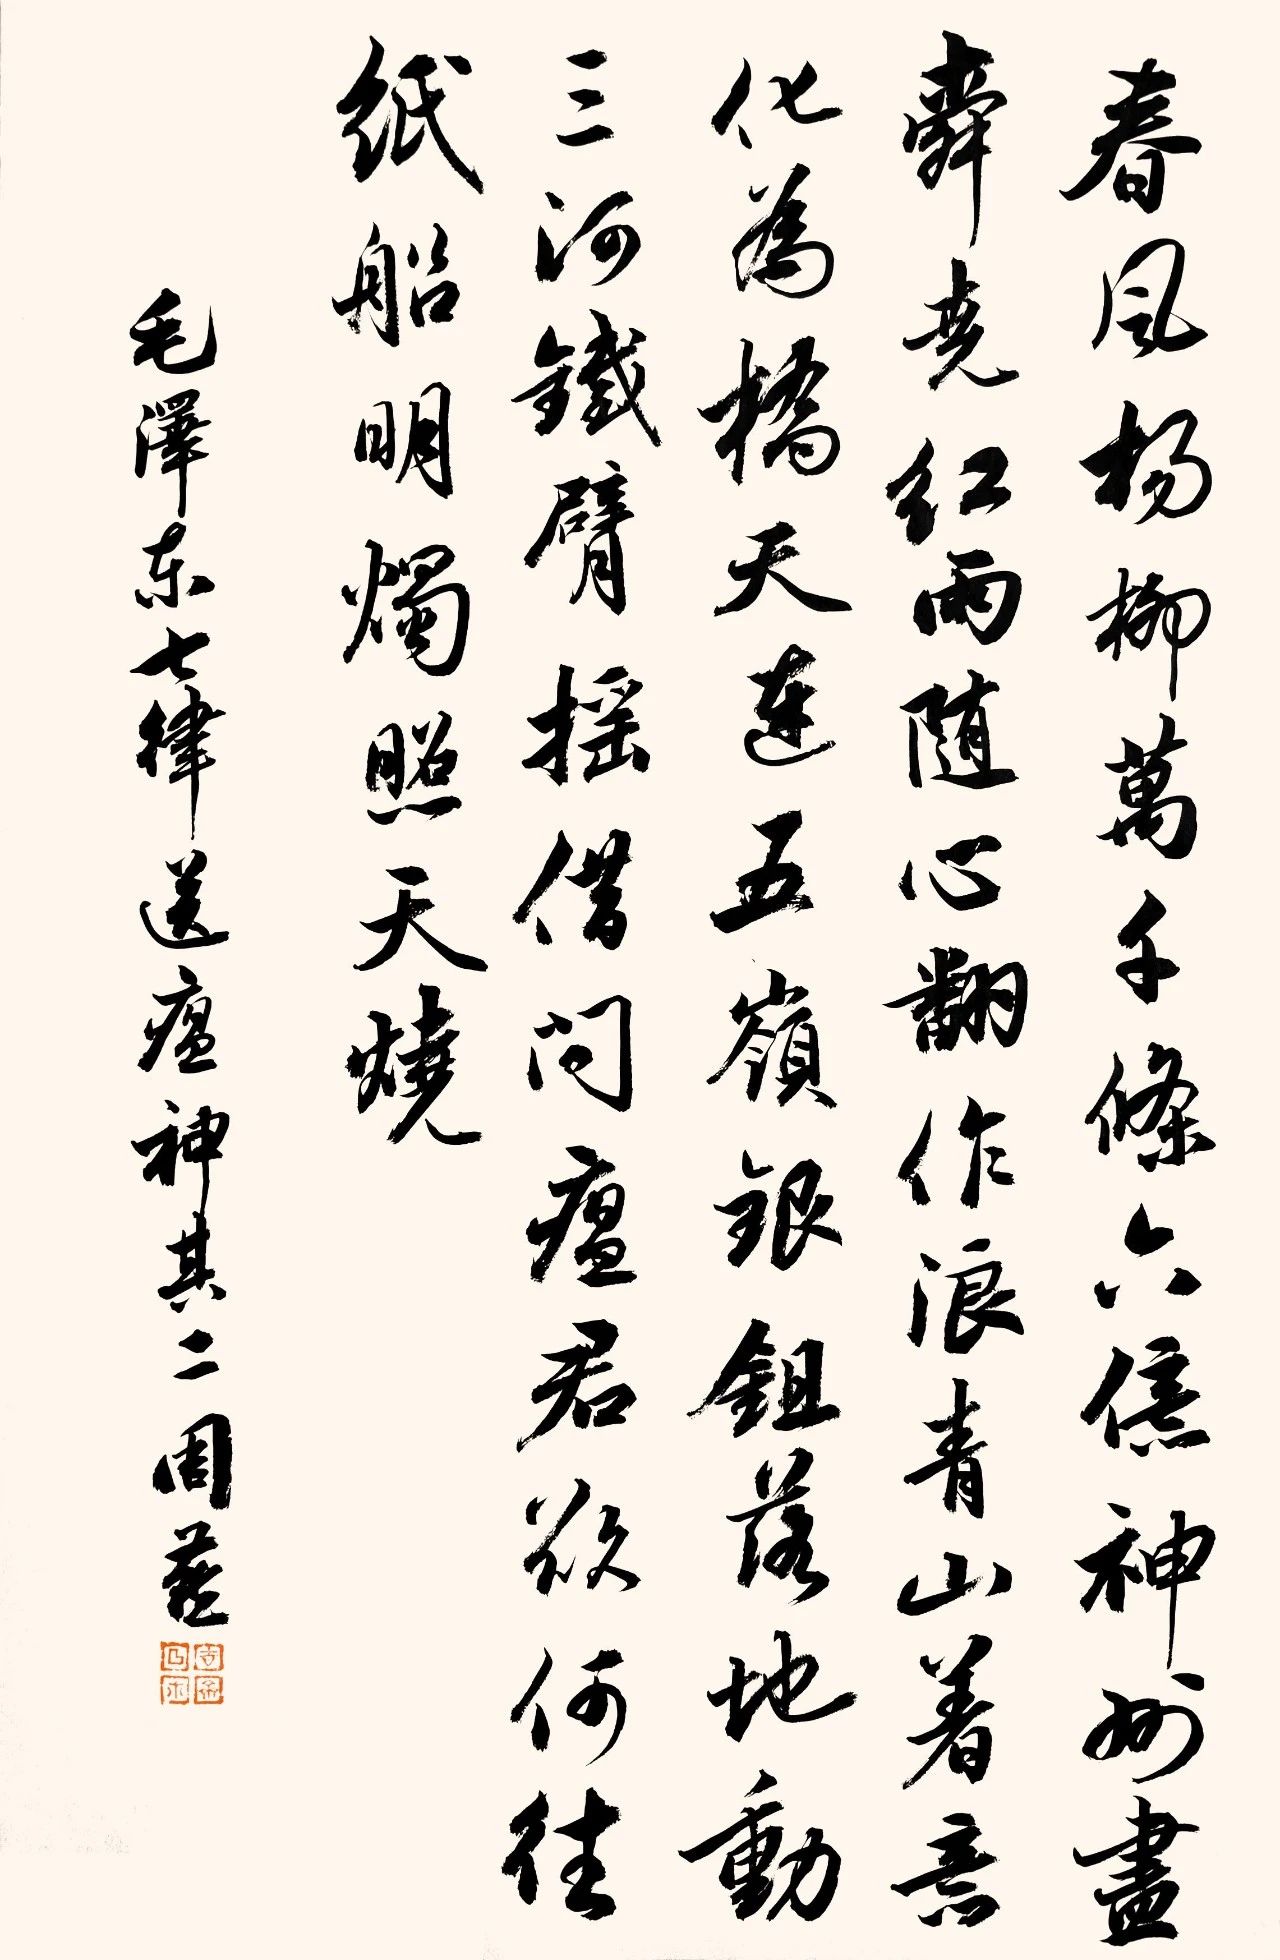 春風楊柳萬千條六億神州盡
舜堯紅雨随心翻作浪青山着意
化為橋天連五嶺銀鉏落地動
三河鐵臂揺借問瘟君欲何往
紙船明燭照天燒
毛澤东七律送瘟神其二周